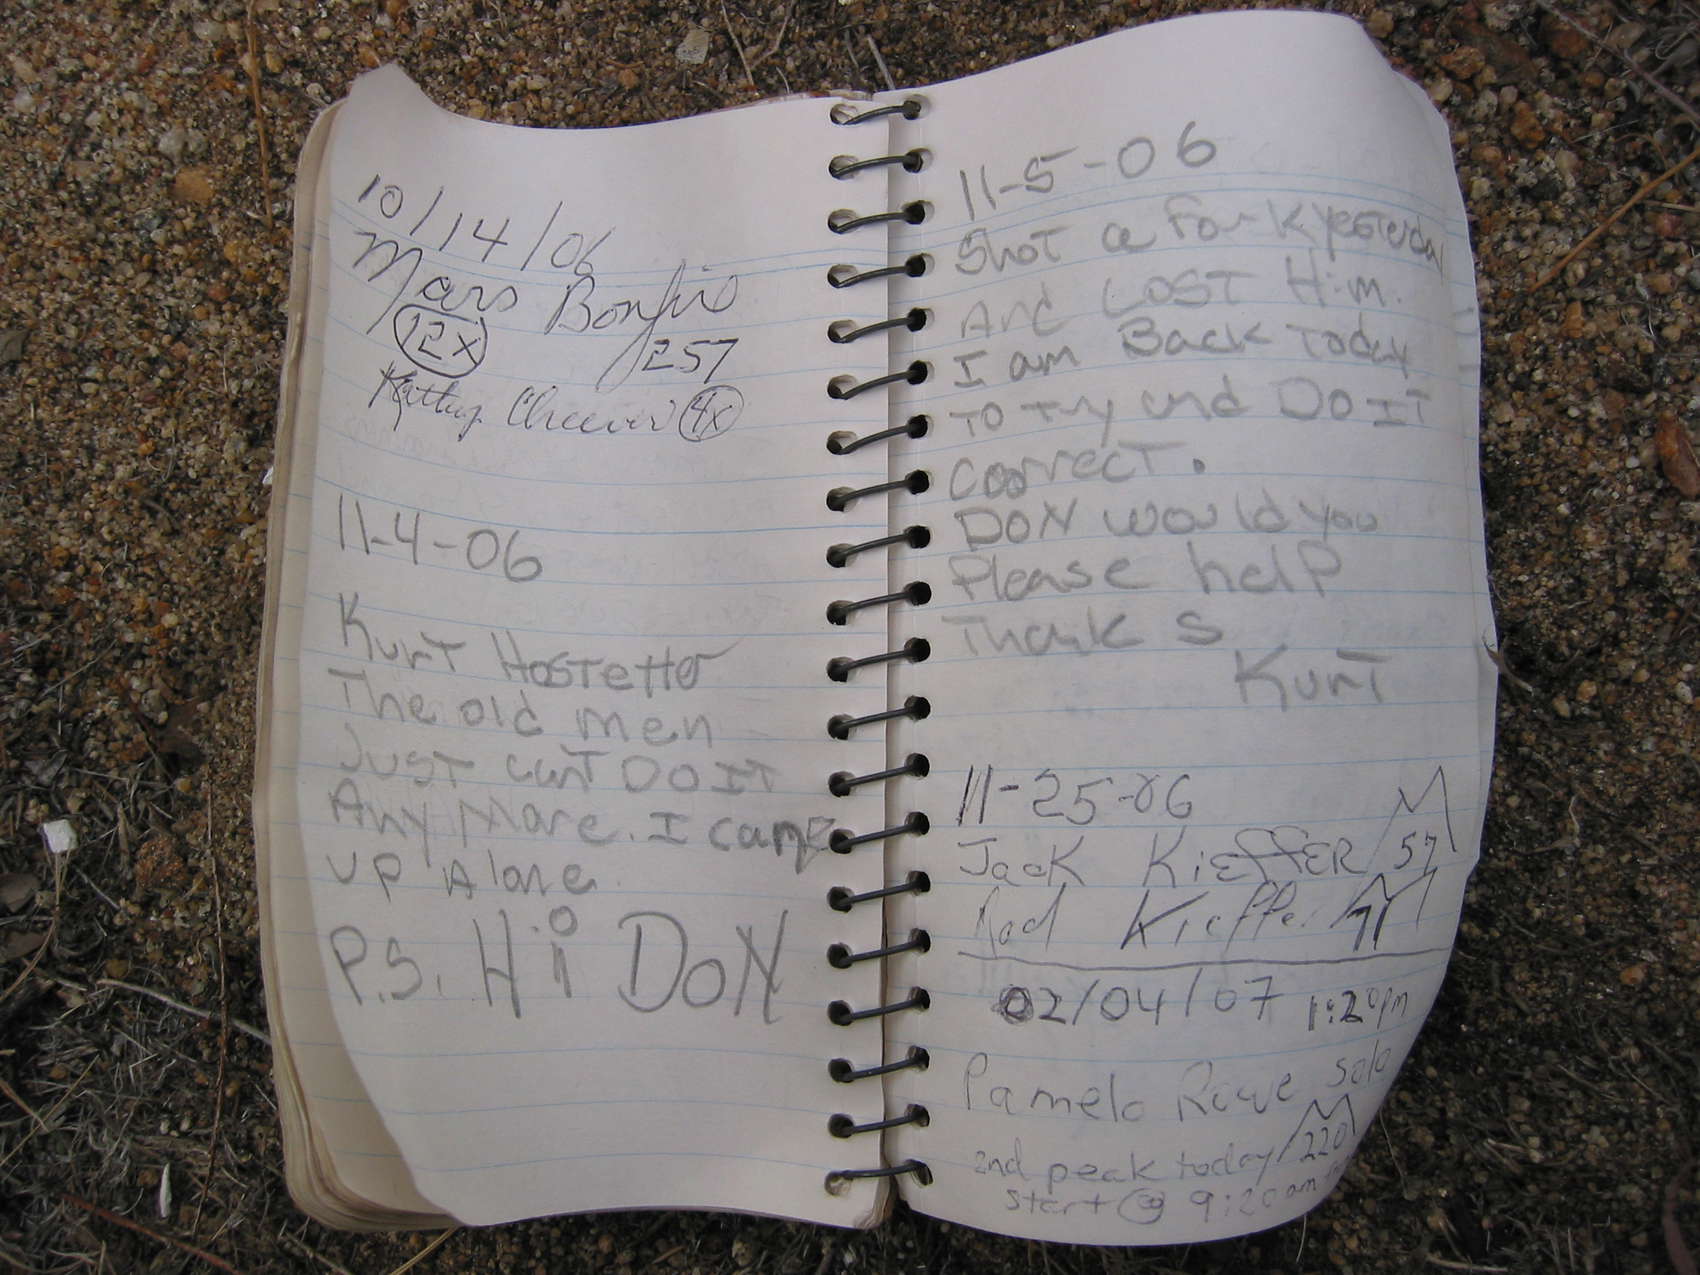 10/14/06
Mars Bonfio
12x 257
Kathy Cheever 4x
11-4-06
Kurt Hostetter
The old men
Just can't DO IT
Any More. I came
UP Alone.
P.S. Hi DON
11-5-06
Shot a Fork yesterday
And LOST Him.
I am Back Today
TO Try and DO IT
correct.
DON would you
Please help
Thank s
Kurt
11-25-06
Jack KieffER 57
Rod Kieffer 71
02/04/07 1:20pm
Pamela Rowe solo
2nd peak today 220
start @ 9:20am